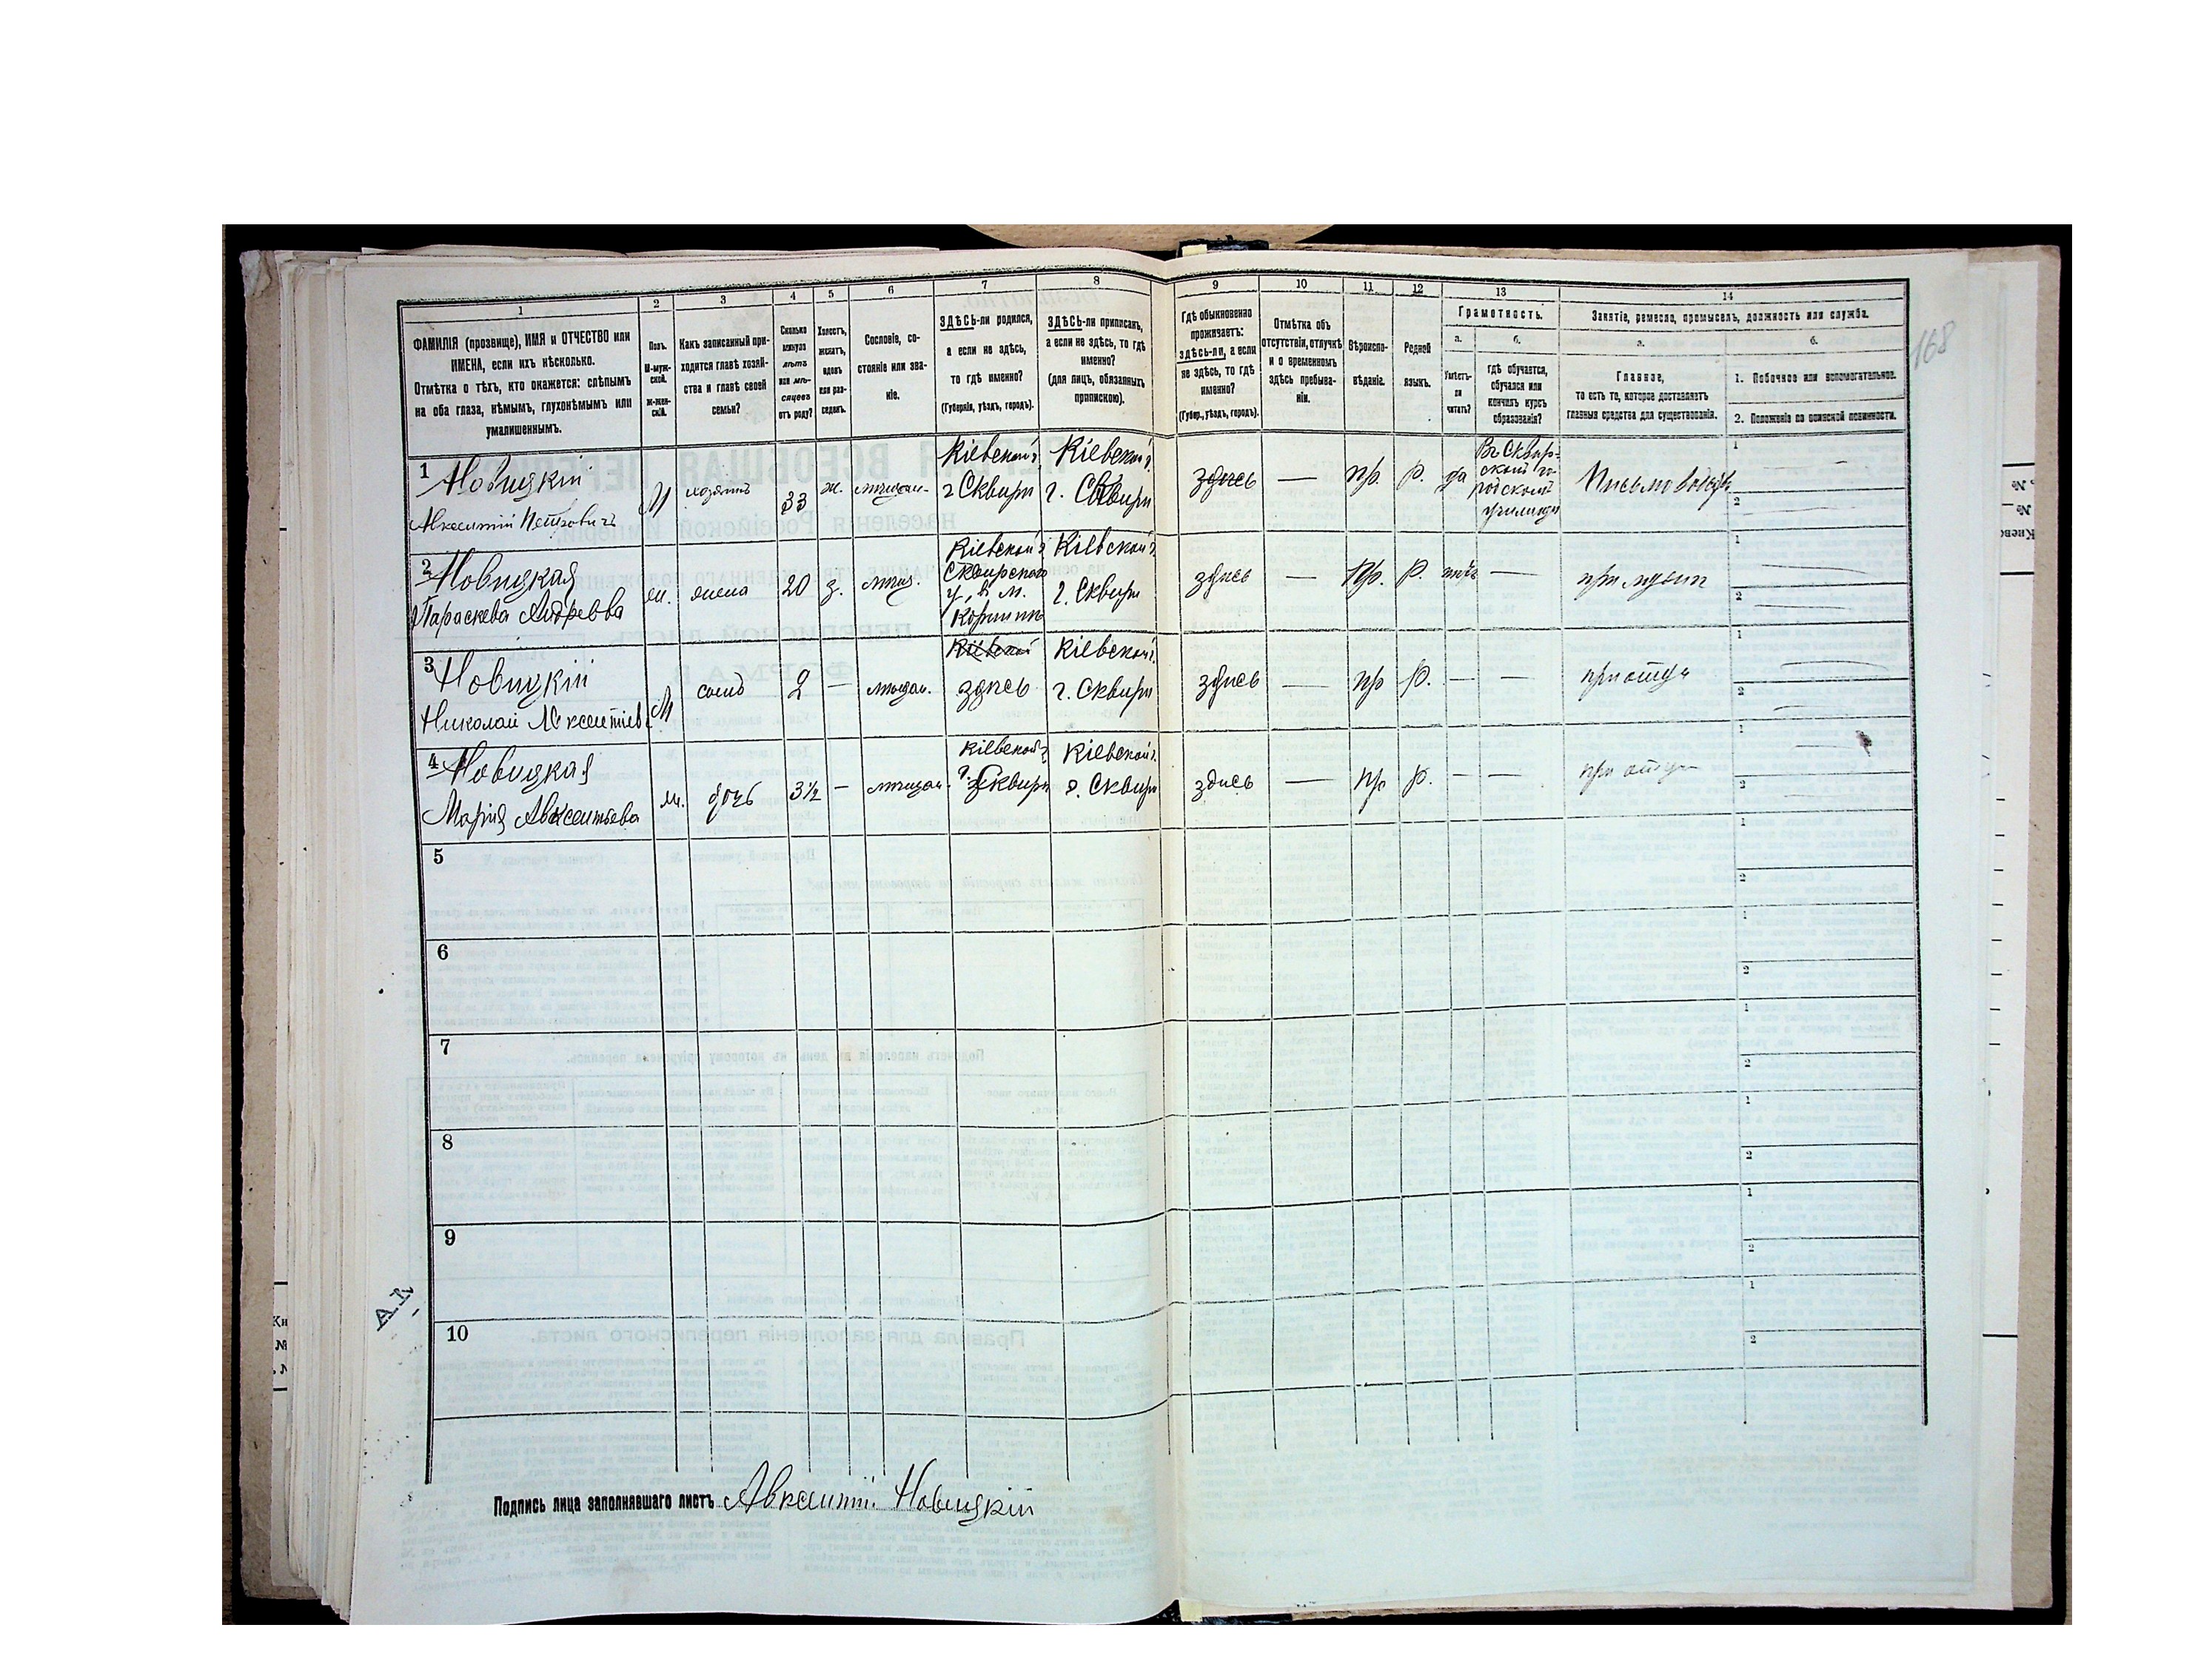 1 2 3 4 5 6 7 8 9 10 11 12 13 14
ФАМИЛІЯ (прозвище), ИМЯ и ОТЧЕСТВО или
ИМЕНА, если ихъ нѣсколько.
Отмѣтка о тѣхъ, кто окажется: слѣпымъ
на оба глаза, нѣмымъ, глухонѣмымъ или
умалишеннымъ.
Полъ.
М-муж-
ской.
ж-жен-
скій.
Какъ записанный при-
ходится главѣ хозяй-
ства и главѣ своей
семьи?
Сколько
минуло
лѣтъ
или мѣ-
сяцевъ
отъ роду?
Холостъ,
женатъ,
вдовъ
или раз-
веденъ.
Сословіе, со-
стояніе или зва-
ніе.
ЗДѢСЬ-ли родился,
а если не здѣсь,
то гдѣ именно?
(Губернія, уѣздъ, городъ).
ЗДѢСЬ-ли приписанъ,
а если не здѣсь, то гдѣ
именно?
(для лицъ, обязанныхъ
припискою).
Гдѣ обыкновенно
проживаетъ:
здѣсь-ли, а если
не здѣсь, то гдѣ
именно?
(Губер., уѣздъ, городъ).
Отмѣтка объ
отсутствіи, отлучкѣ
и о временномъ
здѣсь пребыва-
ніи.
Вѣроиспо-
вѣданіе.
Родной
языкъ.
Грамотность.
а.
Умѣетъ-
ли
читать?
б.
гдѣ обучается,
обучался или
кончилъ курсъ
образованія?
Занятіе, ремесло, промыселъ, должность или служба.
а.
Главное,
то есть то, которое доставляетъ
главныя средства для существованія.
б.
1. Побочное или вспомогательное.
2. Положеніе по воинской повинности.
168
1 Новицкій
Авксентій Петровичъ
М хозяинъ 33 ж. мѣщан.
Кіевской г.
г Сквири
Кіевской г.
г. Сквири
здѣсь — пр. р. да
Въ Сквир-
ской го-
родском
училищи
Письмоводит.
1
2
2 Новицкая
Параскева Андреева
ж. жена 20 з. мѣщ.
Кіевской г.
Сквирского
у., в м.
Кіевской г.
г. Сквири
здѣсь — пр. р. нѣтъ — при мужи
1
2
3 Новицкій
Николай Авксентіев.
М сынъ 2 — мѣщан.
Кіевской
здѣсь
Кіевской г.
г. Сквири
здѣсь — пр р. — — при отци
1
2
4 Новицкая
Марія Авксентьева
ж. дочь 3½ — мѣщан.
Кіевской г.
г. Сквири
Кіевской г.
г. Сквири
здѣсь — пр р. — — при отци
1
2
5
1
2
6
1
2
7
1
2
8
1
2
9
1
2
10
1
2
Подпись лица заполнявшаго листъ Авксентій Новицкій